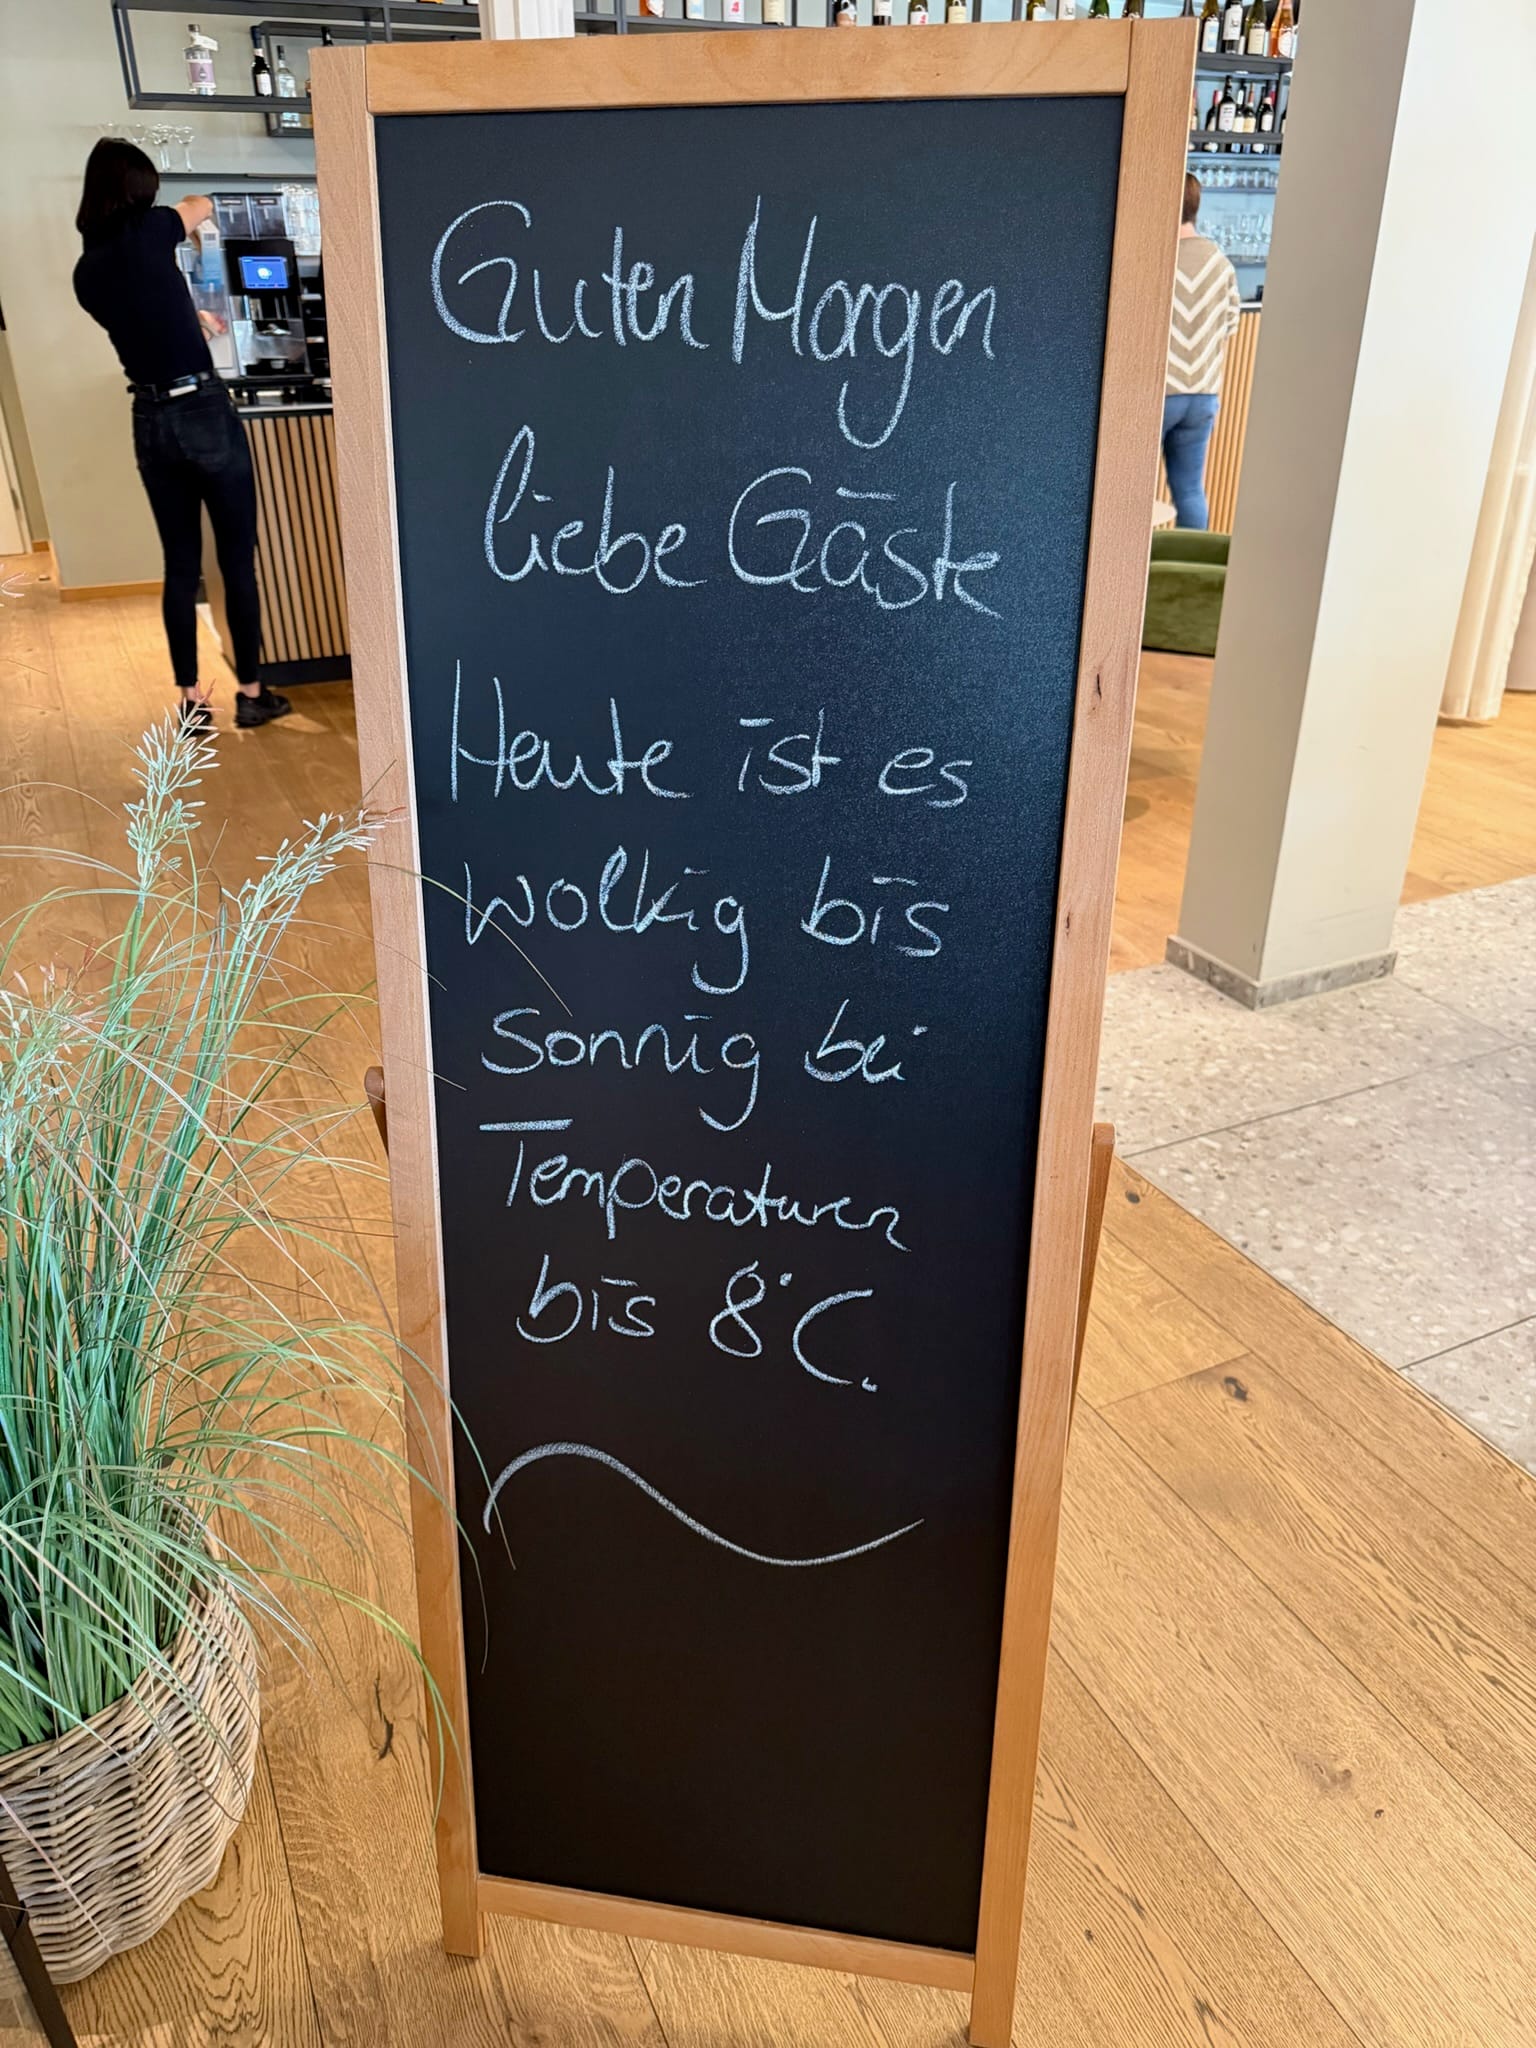 Guten Morgen
liebe Gäste
Heute ist es
wolkig bis
sonnig bei
Temperaturen
bis 8°C.